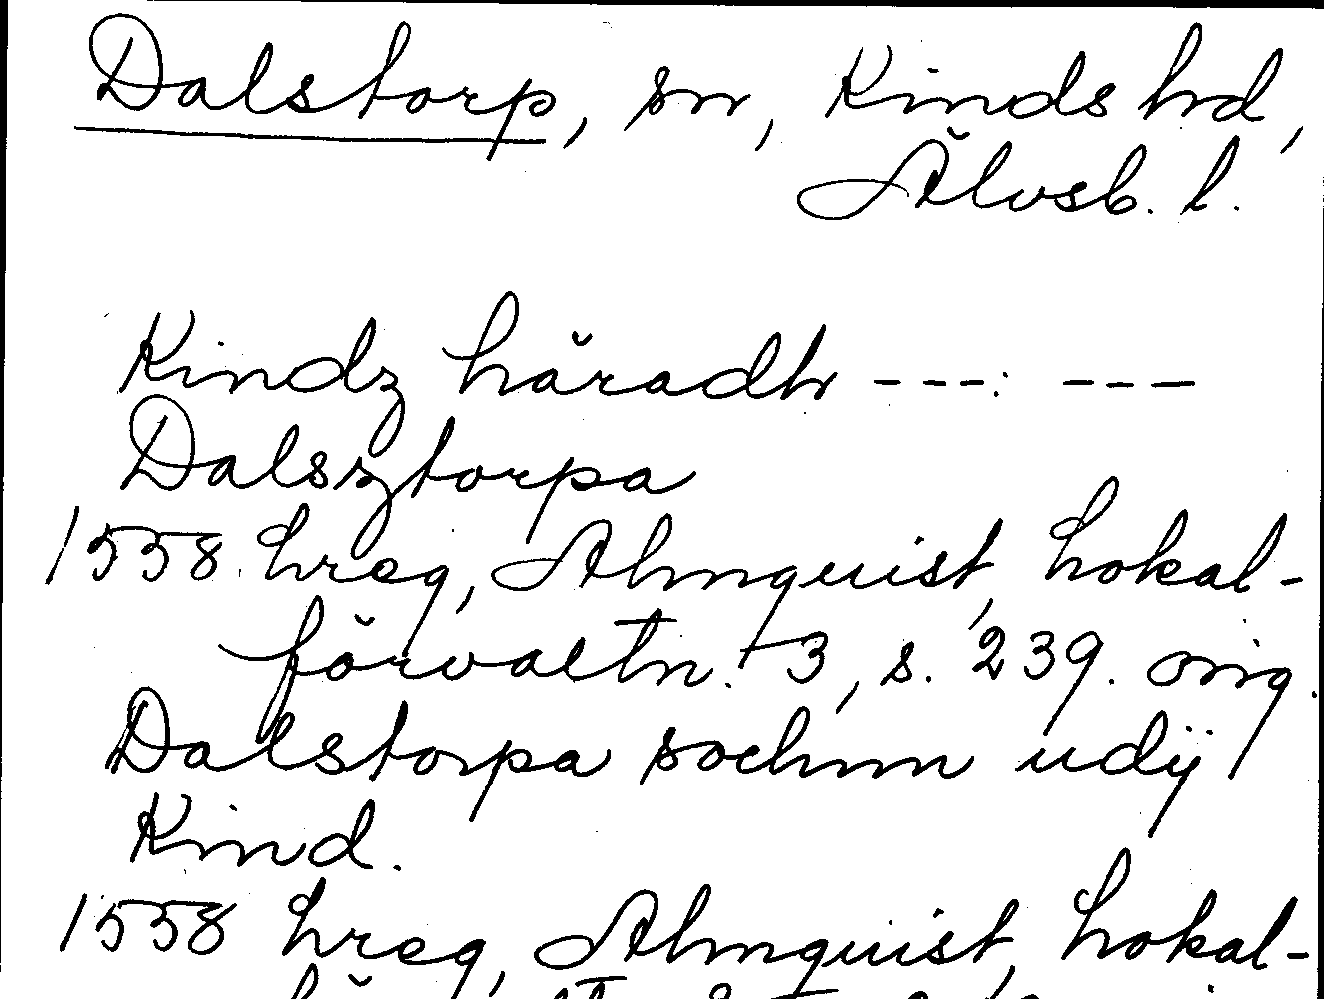 Dalstorp, sn, Kinds hd,
Älvsb. l.
Kindz häradh ---: ---
Dalsztorpa
1558 hreg, Almquist, Lokal-
förvaltn. 3, s. 239. orig.
Dalstorpa sochnn udij
Kind.
1558 hreg, Almquist, Lokal-